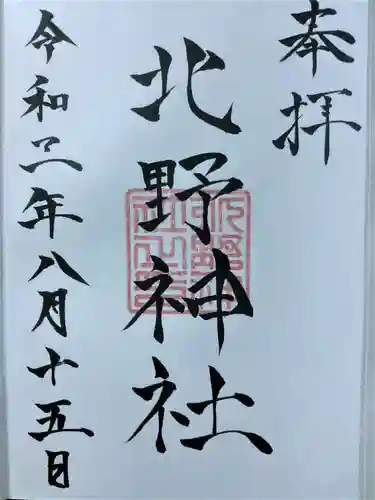 奉拝
北野神社
令和三年八月十五日